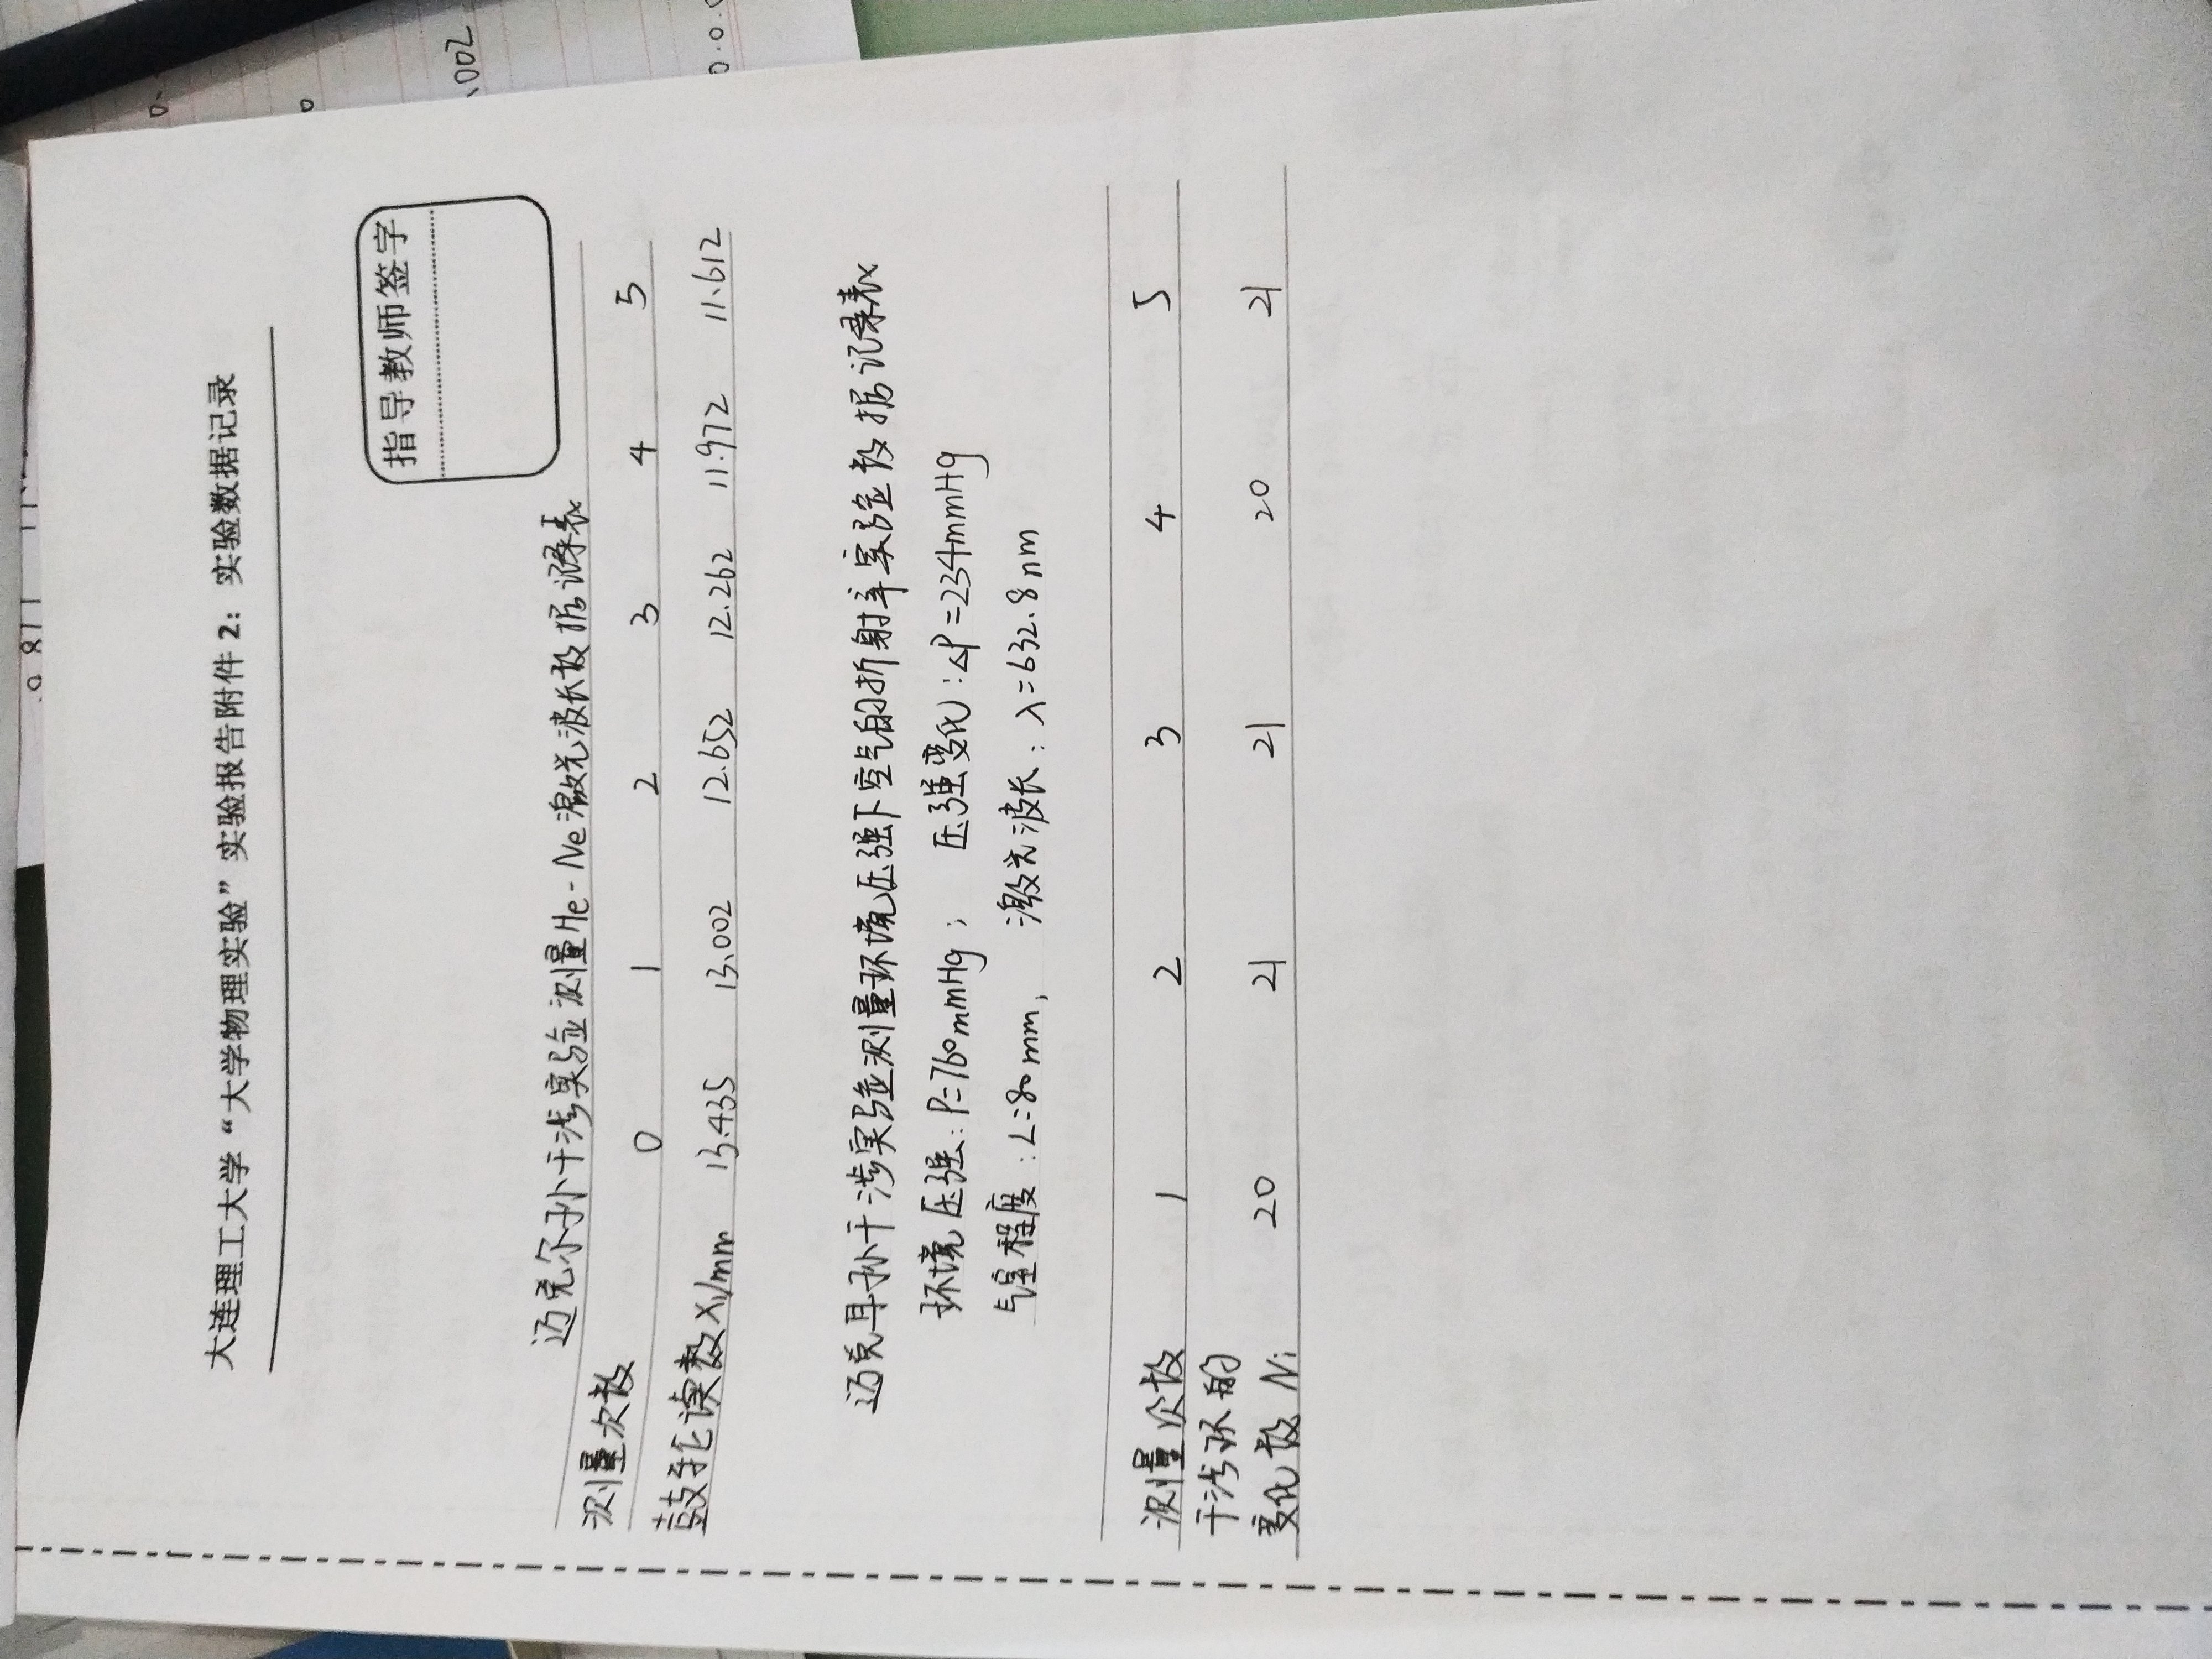 .9 811
大连理工大学“大学物理实验”实验报告附件 2：实验数据记录
指导教师签字
.002
迈克尔孙干涉实验测量He-Ne激光波长数据记录表
测量次数 0 1 2 3 4 5
鼓轮读数Xi/mm 13.435 13.002 12.652 12.262 11.972 11.612
0.0.0
迈克耳孙干涉实验测量环境压强下空气的折射率实验数据记录表
环境压强：P=760mmHg； 压强变化：△P=234mmHg
气室程度：L=80mm， 激光波长：λ=632.8nm
测量次数 1 2 3 4 5
干涉环的
变化数 Ni 20 21 21 20 21